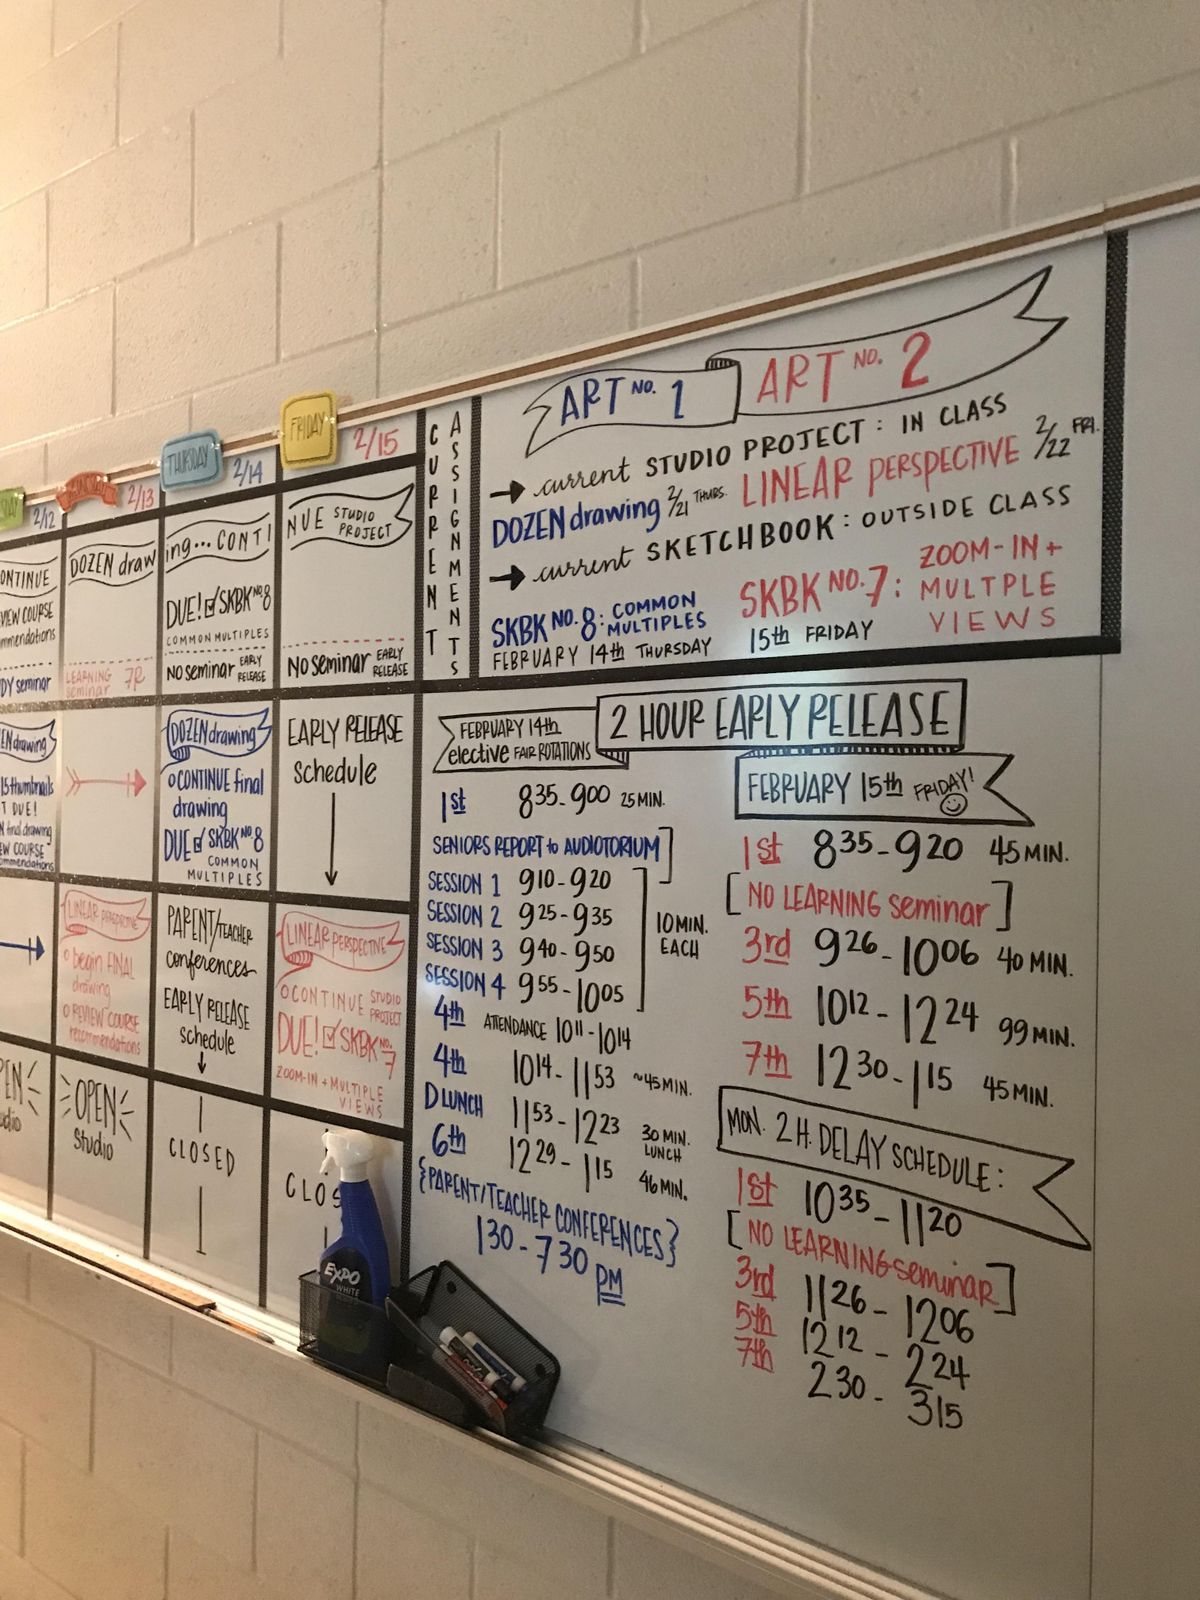 2/12
2/13
THURSDAY
2/14
FRIDAY
2/15
DOZEN draw
ing...CONTI
NUE STUDIO
PROJECT
DUE! SKBK No 8
COMMON MULTIPLES
LEARNING
seminar 7R
NO seminar EARLY
RELEASE
NO seminar EARLY
RELEASE
DOZEN drawing
CONTINUE final
drawing
DUE SKBK No 8
COMMON
MULTIPLES
EARLY RELEASE
schedule
LINEAR PERSPECTIVE
begin FINAL
drawing
REVIEW COURSE
recommendations
PARENT/TEACHER
conferences
EARLY RELEASE
schedule
LINEAR PERSPECTIVE
CONTINUE STUDIO
PROJECT
DUE! SKBK No. 7
ZOOM-IN + MULTIPLE
VIEWS
OPEN
Studio
CLOSED
CLOS
CURRENT
ASSIGNMENTS
ART No. 1
ART No. 2
current STUDIO PROJECT: IN CLASS
DOZEN drawing 2/21 THURS. LINEAR PERSPECTIVE 2/22 FRI.
current SKETCHBOOK: OUTSIDE CLASS
SKBK No. 8: COMMON
MULTIPLES
FEBRUARY 14th THURSDAY
SKBK No. 7: ZOOM-IN +
MULTPLE
VIEWS
15th FRIDAY
2 HOUR EARLY RELEASE
FEBRUARY 14th
elective FAIR ROTATIONS
1st 835-900 25 MIN.
SENIORS REPORT to AUDIOTORIUM
SESSION 1 910-920
SESSION 2 925-935
SESSION 3 940-950
SESSION 4 955-1005
10 MIN.
EACH
4th ATTENDANCE 1011-1014
4th 1014-1153 ~45 MIN.
D LUNCH 1153-1223 30 MIN.
LUNCH
6th 1229-115 46 MIN.
{PARENT/TEACHER CONFERENCES}
130-730 PM
FEBRUARY 15th FRIDAY!
1st 835-920 45 MIN.
[NO LEARNING seminar]
3rd 926-1006 40 MIN.
5th 1012-1224 99 MIN.
7th 1230-115 45 MIN.
MON. 2 H. DELAY SCHEDULE:
1st 1035-1120
[NO LEARNING seminar]
3rd 1126-1206
5th 1212-224
7th 230-315
EXPO
WHITE